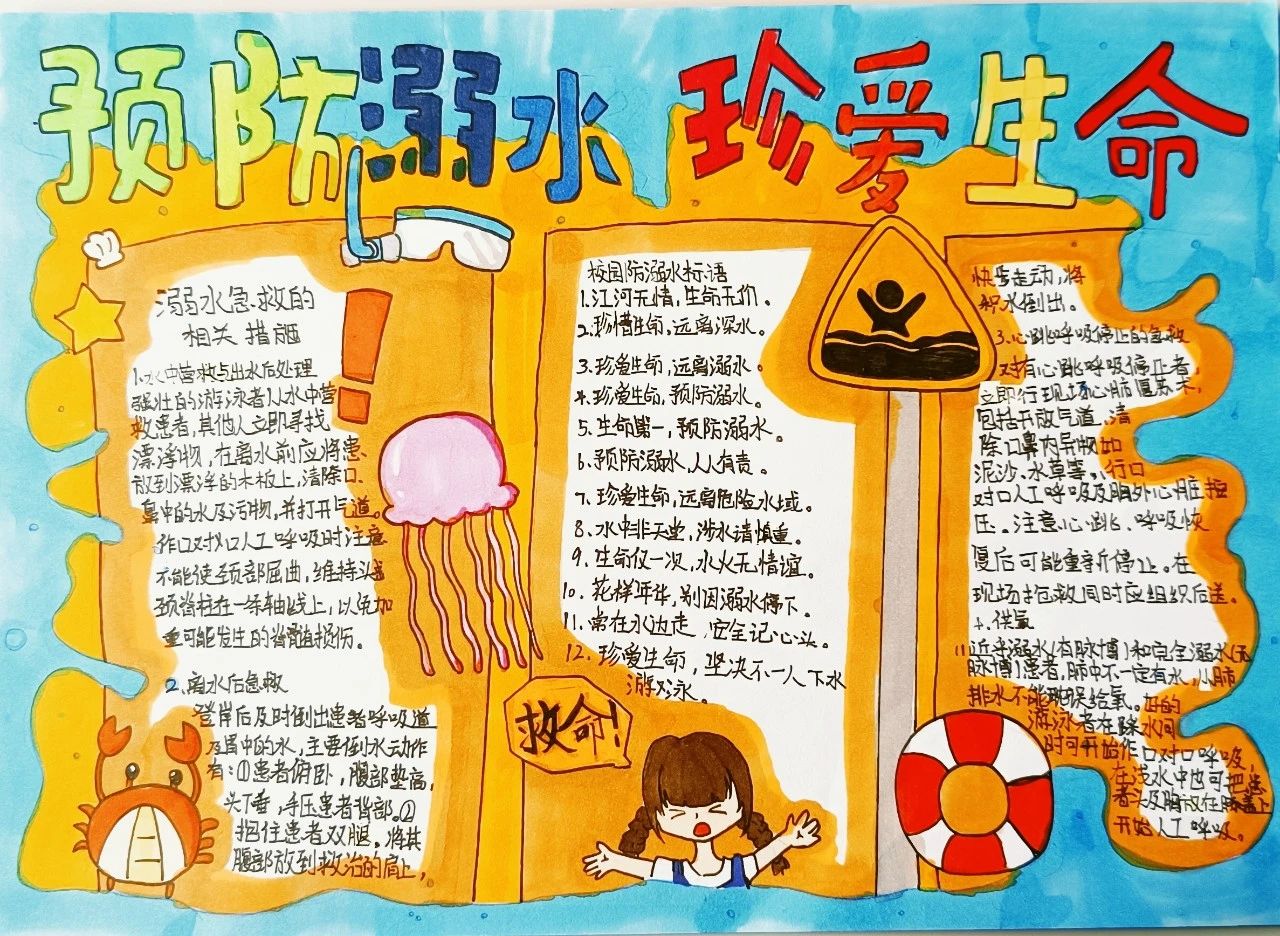 预防溺水 珍爱生命
溺水急救的
相关措施
1.水中营救与出水后处理
强壮的游泳者从水中营
救患者,其他人立即寻找
漂浮物,在离水前应将患
放到漂浮的木板上,清除口、
鼻中的水及污物,并打开气道。
作口对口人工呼吸时注意
不能使颈部屈曲,维持头
颈脊柱在一条轴线上,以免加
重可能发生的脊髓损伤。
2.离水后急救
登岸后及时倒出患者呼吸道
及胃中的水,主要倒水动作
有:①患者俯卧,腹部垫高,
头下垂,手压患者背部。②
抱住患者双腿。将其
腹部放到救治的肩上,
救命!
校园防溺水标语
1.江河无情,生命无价。
2.珍惜生命,远离深水。
3.珍爱生命,远离溺水。
4.珍爱生命,预防溺水。
5.生命第一,预防溺水。
6.预防溺水,人人有责。
7.珍爱生命,远离危险水域。
8.水中非天堂,涉水请慎重。
9.生命仅一次,水火无情谊。
10.花样年华,别因溺水停下。
11.常在水边走,安全记心头。
12.珍爱生命,坚决不一人下水
游泳。
快步走动,将
积水倒出。
3.心跳呼吸停止的急救
对有心跳呼吸停止者,
立即行现场心肺复苏术,
包括开放气道、清
除口鼻内异物如
泥沙、水草等,行口
对口人工呼吸及胸外心脏按
压。注意心跳、呼吸恢
复后可能重新停止。在
现场抢救同时应组织后送。
4.供氧
近乎溺水(有脉博)和完全溺水(无
脉博)患者,肺中不一定有水,从肺
排水不能确保给氧。好的
游泳者在踩水同
时可开始作口对口呼吸,
在浅水中也可把患
者头及胸放在膝盖上
开始人工呼吸。